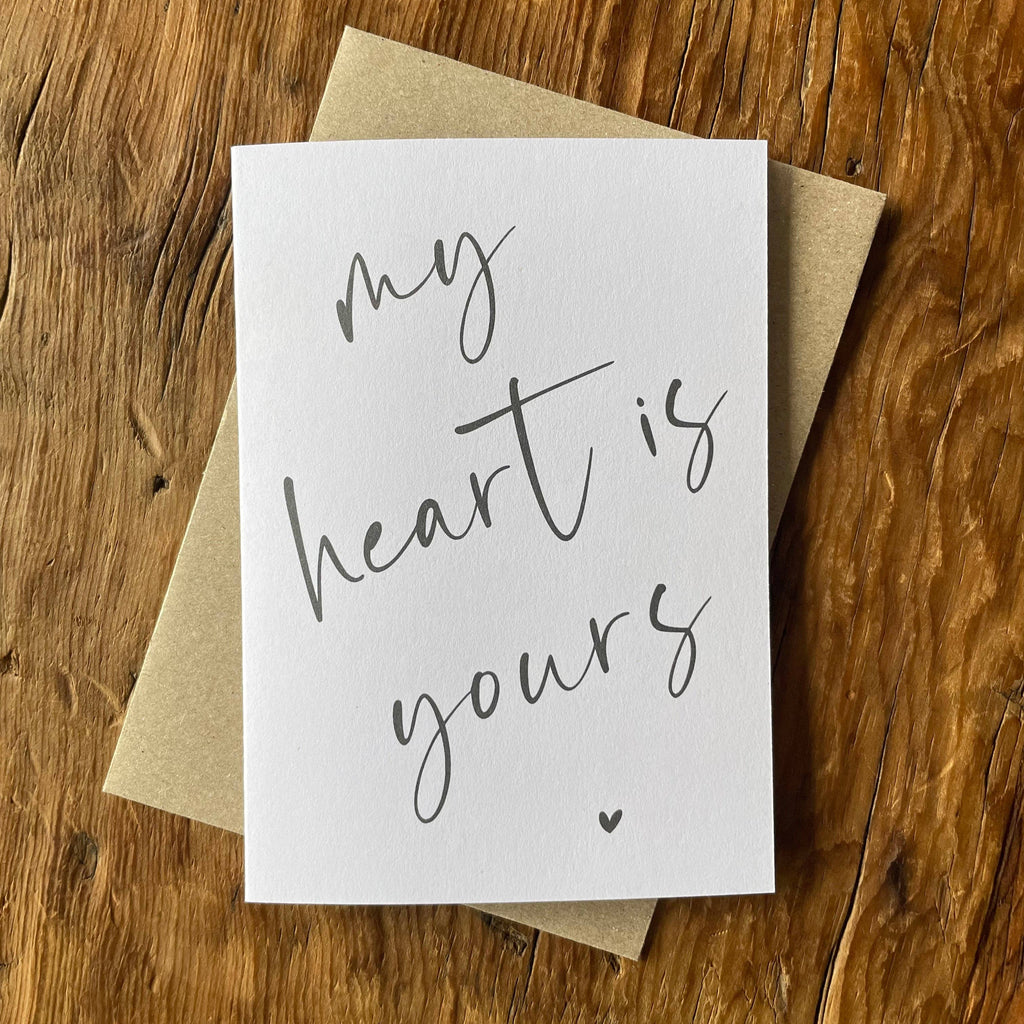 my
heart is
yours